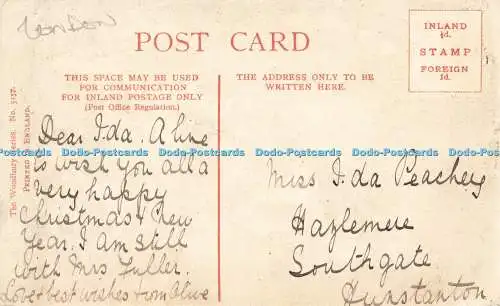 London
POST CARD
INLAND
½d.
STAMP
FOREIGN
1d.
THIS SPACE MAY BE USED
FOR COMMUNICATION
FOR INLAND POSTAGE ONLY
(Post Office Regulation.)
THE ADDRESS ONLY TO BE
WRITTEN HERE.
The Woodbury Series. No. 3157.
PRINTED IN ENGLAND.
Dear Ida. A line
to wish you all a
very happy
Christmas & New
Year. I am still
with Mrs Fuller.
Love & best wishes from Olive
Miss Ida Peachey
Hazlemere
Southgate
Hunstanton
Dodo-Postcards Dodo-Postcards Dodo-Postcards Dodo-Postcards Dodo-Postcards